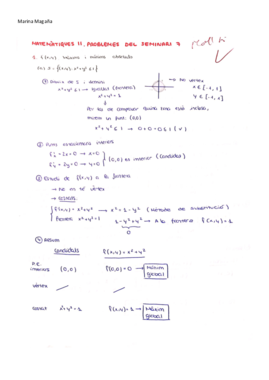 Marina Magaña
MATEMÀTIQUES II. PROBLEMES DEL SEMINARI 7
2. f(x,y) màxims i mínims absoluts
en A = {(x,y): x²+y² ≤ 1}
① Dibuix de
x²+y² ≤ 1 → igualtat (frontera)
x²+y² = 1
→ No vèrtex
x ∈ [-1, 1]
y ∈ [-1, 1]
Per tal de comprovar quina zona està inclosa,
mirem un punt (0,0)
x²+y² ≤ 1 → 0+0=0 ≤ 1 (✓)
② Punts estacionaris interiors
f'x = 2x = 0 → x=0
f'y = 2y = 0 → y=0
(0,0) és interior (candidat)
③ Estudi de f(x,y) a la frontera
→ No hi vèrtex
f(x,y) = x²+y² → x² = 1-y² (Mètode de substitució)
Frontera x²+y²=1
1-y²+y² → A la frontera f(x,y)=1
0
④ Avaluem
candidats
f(x,y) = x²+y²
P.E.
interiors
(0,0)
f(0,0)=0 → Mínim
global
vèrtex
x²+y²=1
f(x,y)=1 → Màxim
global